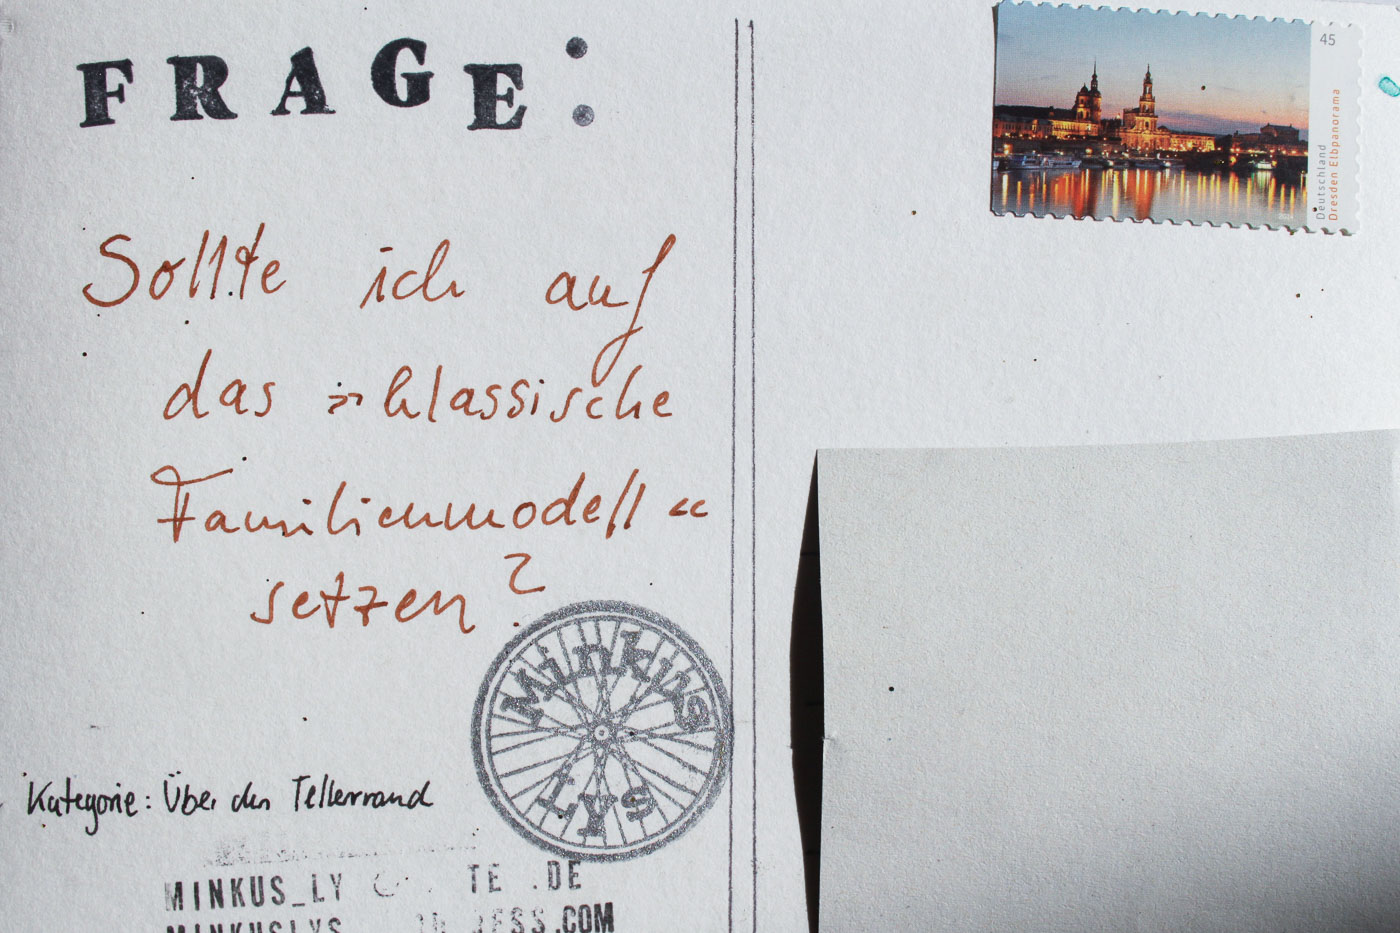 FRAGE:
Sollte ich auf
das »klassische
Familienmodell«
setzen?
Kategorie: Über den Tellerrand
Minkus
Lys
MINKUS_LY TE .DE
MINKUSLYS .COM
45
Deutschland
Dresden Elbpanorama